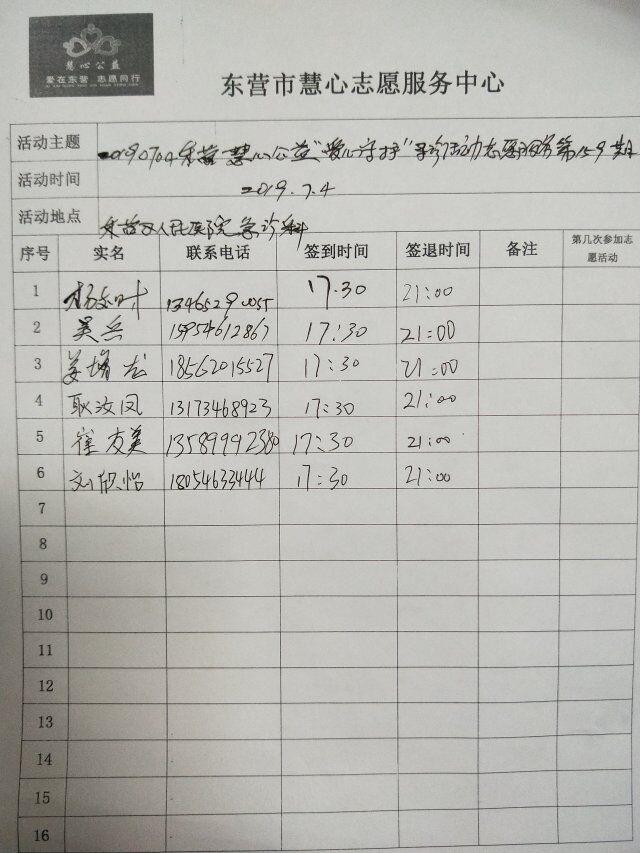 慧心公益
爱在东营 志愿同行
东营市慧心志愿服务中心
活动主题 20190704东营慧心公益“爱心守护”导诊活动志愿服务第159期
活动时间 2019.7.4
活动地点 东营区人民医院急诊科
序号 实名 联系电话 签到时间 签退时间 备注 第几次参加志愿活动
1 13465290055 17:30 21:00
2 吴兵 15954612867 17:30 21:00
3 姜增龙 18562015527 17:30 21:00
4 耿汝凤 13173468923 17:30 21:00
5 崔友美 13589992380 17:30 21:00
6 刘欣怡 18054633444 17:30 21:00
7
8
9
10
11
12
13
14
15
16